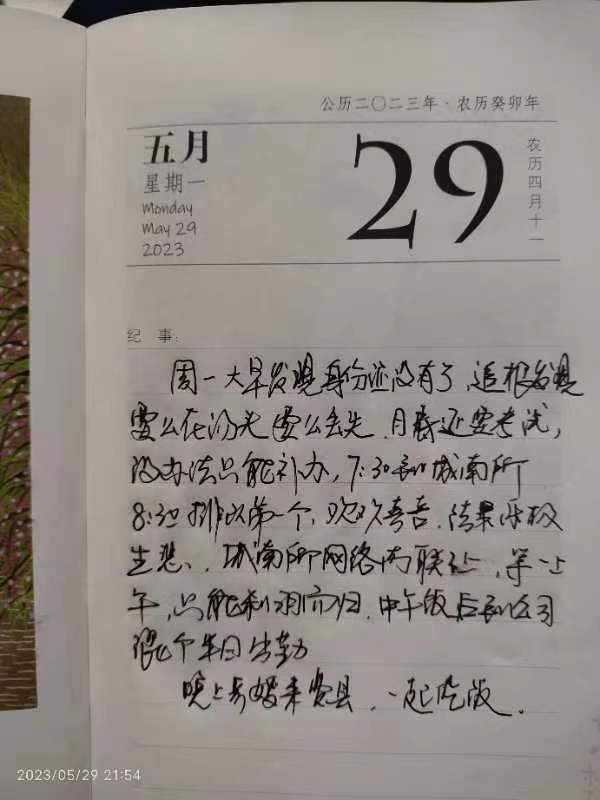 公历二〇二三年·农历癸卯年
五月
星期一
Monday
May 29
2023
29
农历四月十一
纪 事:
周一大早发现身份证没有了,追根发现
要么在汤头要么丢失.月底还要考试,
没办法只能补办,7:30到城南所
8:30排队第一个,欢欢喜喜.结果乐极
生悲、城南所网络内联让,等一上
午,只能利润而归.中午饭后到公司
混个半日出勤
晚上 来费县,一起吃饭.
2023/05/29 21:54